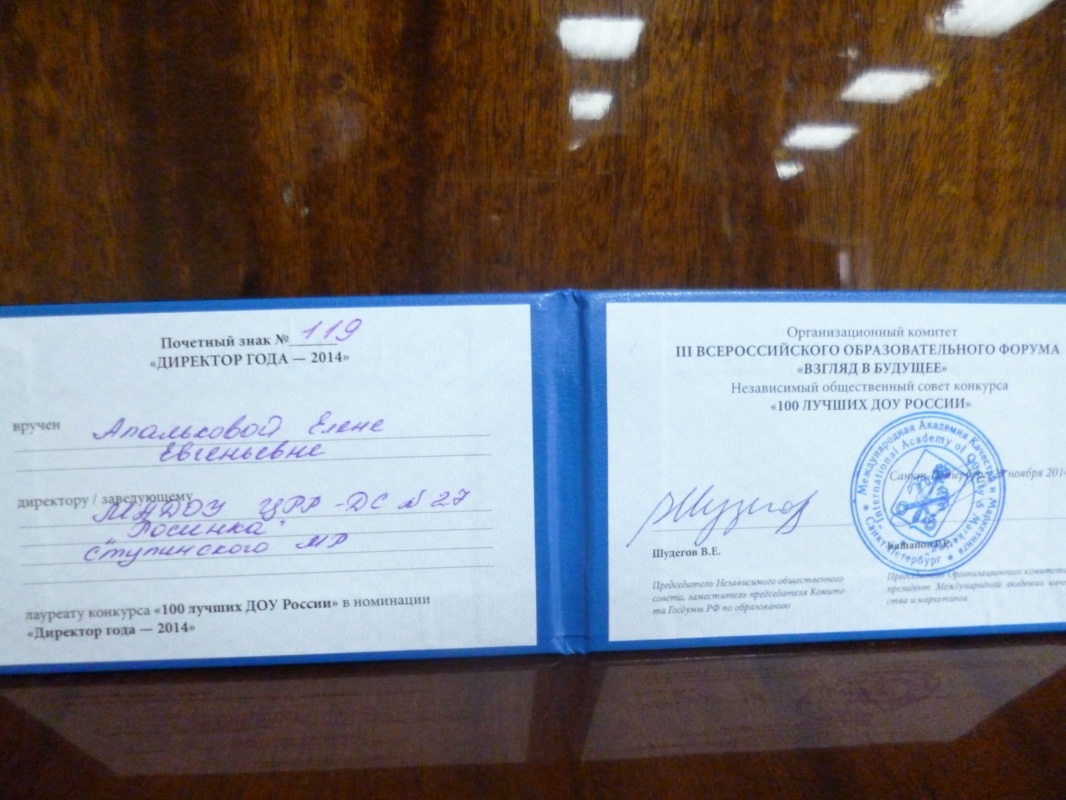 Почетный знак № 119
«ДИРЕКТОР ГОДА — 2014»
вручен Апальковой Елене
Евгеньевне
директору / заведующему
МАДОУ ЦРР-ДС №27
"Росинка"
Ступинского МР
лауреату конкурса «100 лучших ДОУ России» в номинации
«Директор года — 2014»
Организационный комитет
III ВСЕРОССИЙСКОГО ОБРАЗОВАТЕЛЬНОГО ФОРУМА
«ВЗГЛЯД В БУДУЩЕЕ»
Независимый общественный совет конкурса
«100 ЛУЧШИХ ДОУ РОССИИ»
Международная Академия Качества и Маркетинга
International Academy of Quality & Marketing
Санкт-Петербург
Санкт-Петербург, ноября 2014
Шудегов
Шудегов В.Е.
Председатель Независимого общественного
совета, заместитель председателя Комите-
та Госдумы РФ по образованию
Председатель Организационного комитета,
президент Международной академии каче-
ства и маркетинга